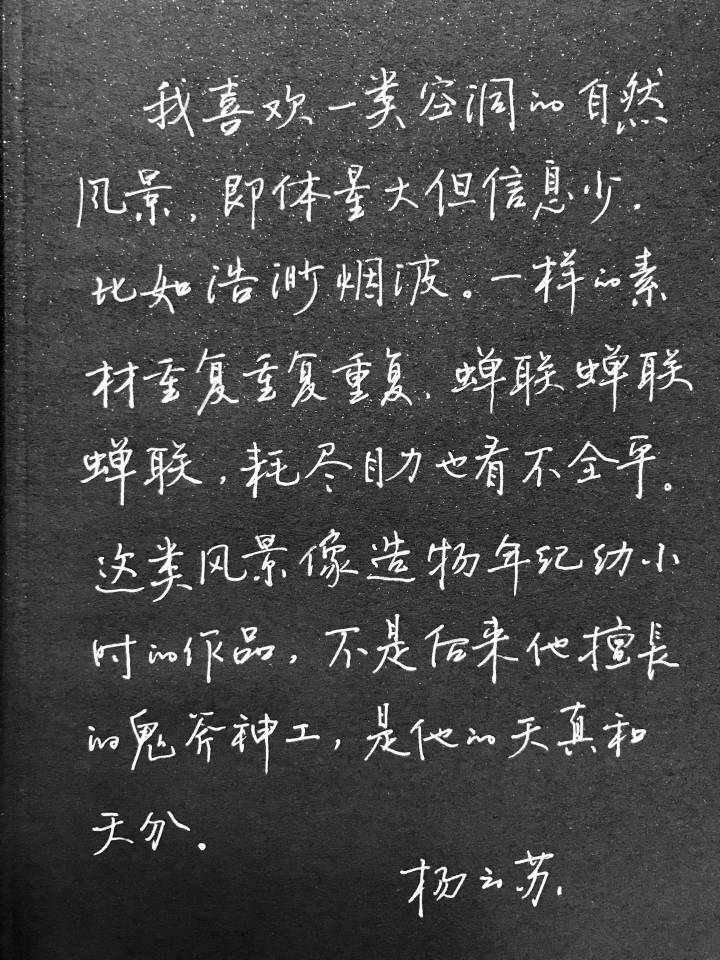 我喜欢一类空洞的自然
风景，即体量大但信息少，
比如浩渺烟波。一样的素
材重复重复重复、蝉联蝉联
蝉联，耗尽目力也看不全乎。
这类风景像造物年纪幼小
时的作品，不是后来他擅長
的鬼斧神工，是他的天真和
天分。
杨云苏.